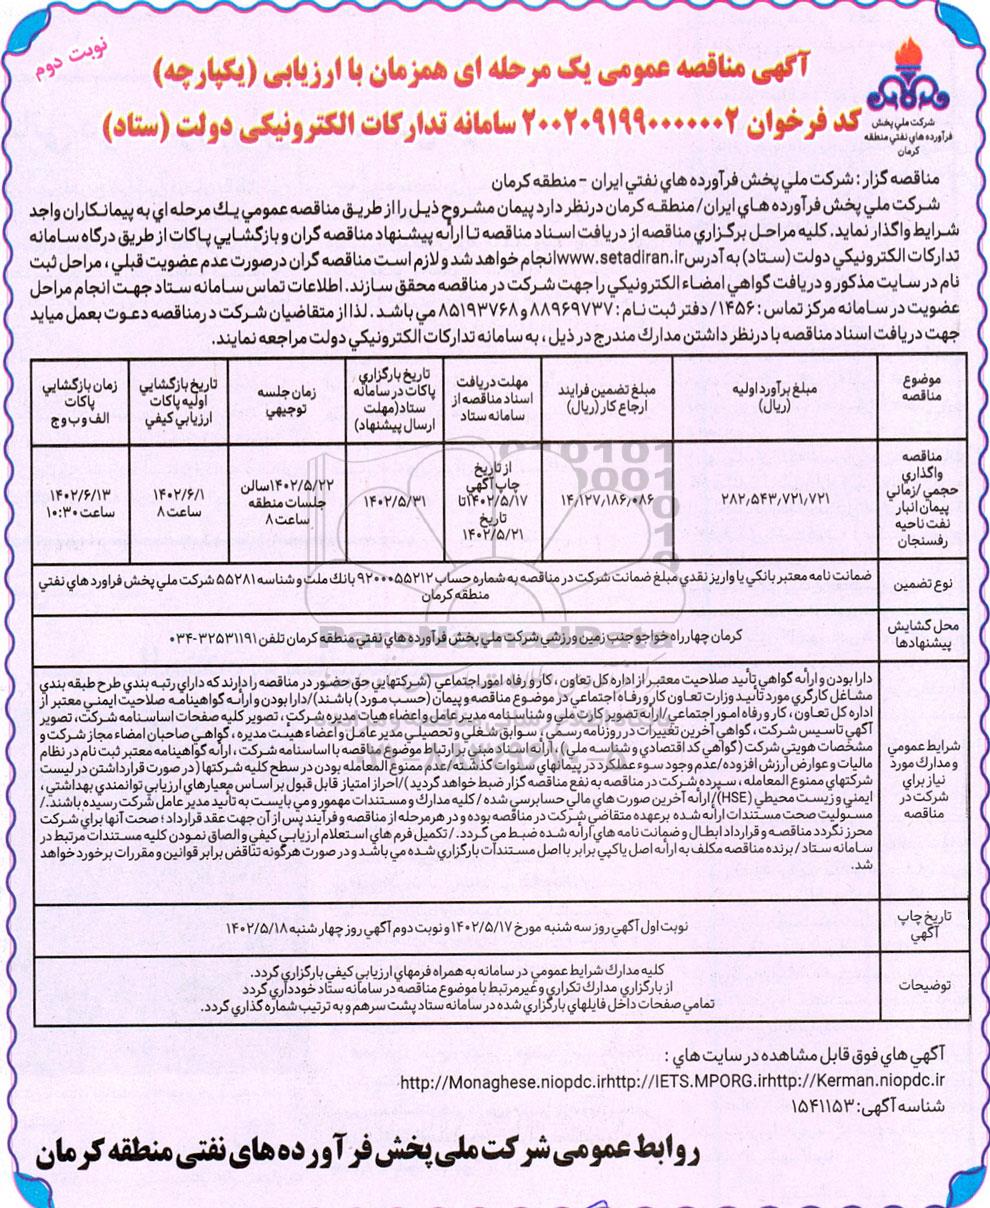 نوبت دوم
آگهی مناقصه عمومی یک مرحله ای همزمان با ارزیابی (یکپارچه)
کد فرخوان ۲۰۰۲۰۹۱۹۹۰۰۰۰۰۰۲ سامانه تدارکات الکترونیکی دولت (ستاد)
شرکت ملي پخش
فرآورده هاي نفتي منطقه
کرمان
مناقصه گزار : شرکت ملي پخش فرآورده هاي نفتي ايران - منطقه کرمان
شرکت ملي پخش فرآورده هاي ايران/ منطقه کرمان درنظر دارد پيمان مشروح ذيل را از طريق مناقصه عمومي يك مرحله اي به پيمانکاران واجد
شرايط واگذار نمايد. کليه مراحل برگزاري مناقصه از دريافت اسناد مناقصه تا ارائه پيشنهاد مناقصه گران و بازگشايي پاکات از طريق درگاه سامانه
تدارکات الکترونيکي دولت (ستاد) به آدرس www.setadiran.ir انجام خواهد شد و لازم است مناقصه گران درصورت عدم عضويت قبلي ، مراحل ثبت
نام در سايت مذکور و دريافت گواهي امضاء الکترونيکي را جهت شرکت در مناقصه محقق سازند. اطلاعات تماس سامانه ستاد جهت انجام مراحل
عضويت در سامانه مرکز تماس : ۱۴۵۶/ دفتر ثبت نام : ۸۸۹۶۹۷۳۷ و ۸۵۱۹۳۷۶۸ مي باشد . لذا از متقاضيان شرکت در مناقصه دعوت بعمل ميايد
جهت دريافت اسناد مناقصه با درنظر داشتن مدارك مندرج در ذيل ، به سامانه تدارکات الکترونيکي دولت مراجعه نمايند.
موضوع
مناقصه
مبلغ برآورد اوليه
(ريال)
مبلغ تضمين فرايند
ارجاع کار (ريال)
مهلت دريافت
اسناد مناقصه از
سامانه ستاد
تاريخ بارگزاري
پاکات در سامانه
ستاد (مهلت
ارسال پيشنهاد)
زمان جلسه
توجيهي
تاريخ بازگشايي
اوليه پاکات
ارزيابي کيفي
زمان بازگشايي
پاکات
الف و ب و ج
مناقصه
واگذاري
حجمي /زماني
پيمان انبار
نفت ناحيه
رفسنجان
۲۸۲,۵۴۳,۷۲۱,۷۲۱
۱۴,۱۲۷,۱۸۶,۰۸۶
از تاريخ
چاپ آگهي
۱۴۰۲/۵/۱۷تا
تاريخ
۱۴۰۲/۵/۲۱
۱۴۰۲/۵/۳۱
۱۴۰۲/۵/۲۲سالن
جلسات منطقه
ساعت ۸
۱۴۰۲/۶/۱
ساعت ۸
۱۴۰۲/۶/۱۳
ساعت ۱۰:۳۰
نوع تضمين
ضمانت نامه معتبر بانکي يا واريز نقدي مبلغ ضمانت شرکت در مناقصه به شماره حساب ۹۲۰۰۰۵۵۲۱۲ بانك ملت و شناسه ۵۵۲۸۱ شرکت ملي پخش فراورد هاي نفتي
منطقه کرمان
محل گشايش
پيشنهادها
کرمان چهارراه خواجو جنب زمين ورزشي شرکت ملي پخش فرآورده هاي نفتي منطقه کرمان تلفن ۳۲۵۳۱۱۹۱-۰۳۴
شرايط عمومي
و مدارك مورد
نياز براي
شرکت در
مناقصه
دارا بودن و ارائه گواهي تأئيد صلاحيت معتبر از اداره کل تعاون ، کار و رفاه امور اجتماعي (شرکتهايي حق حضور در مناقصه را دارند که داراي رتبه بندي طرح طبقه بندي
مشاغل کارگري مورد تائيد وزارت تعاون کار و رفاه اجتماعي در موضوع مناقصه و پيمان (حسب مورد) باشند)/دارا بودن و ارائه گواهينامه صلاحيت ايمني معتبر از
اداره کل تعاون ، کار و رفاه امور اجتماعي/ارائه تصوير کارت ملي و شناسنامه مدير عامل و اعضاء هيات مديره شرکت ، تصوير کليه صفحات اساسنامه شرکت، تصوير
آگهي تاسيس شرکت ، گواهي آخرين تغييرات در روزنامه رسمي، سوابق شغلي و تحصيلي مدير عامل و اعضاء هيئت مديره ، گواهي صاحبان امضاء مجاز شرکت و
مشخصات هويتي شرکت (گواهي کد اقتصادي و شناسه ملي)، ارائه اسناد مبني بر ارتباط موضوع مناقصه با اساسنامه شرکت ، ارائه گواهينامه معتبر ثبت نام در نظام
ماليات و عوارض ارزش افزوده/عدم وجود سوء عملکرد در پيمانهاي سنوات گذشته/ عدم ممنوع المعامله بودن در سطح کليه شرکتها (در صورت قرارداشتن در ليست
شرکتهاي ممنوع المعامله ، سپرده شرکت در مناقصه به نفع مناقصه گزار ضبط خواهد گرديد)/احراز امتياز قابل قبول بر اساس معيارهاي ارزيابي توانمندي بهداشتي ،
ايمني و زيست محيطي (HSE)/ارائه آخرين صورت هاي مالي حسابرسي شده / کليه مدارك و مستندات مهمور و مي بايست به تأئيد مدير عامل شرکت رسيده باشند./
مسئوليت صحت مستندات ارائه شده برعهده متقاضي شرکت در مناقصه بوده و در هر مرحله از مناقصه و فرآيند پس از آن جهت عقد قرارداد ؛ صحت آنها براي شرکت
محرز نگردد مناقصه و قرارداد ابطال و ضمانت نامه هاي ارائه شده ضبط مي گردد. / تکميل فرم هاي استعلام ارزيابي کيفي و الصاق نمودن کليه مستندات مرتبط در
سامانه ستاد / برنده مناقصه مکلف به ارائه اصل يا کپي برابر با اصل مستندات بارگزاري شده مي باشد و در صورت هرگونه تناقض برابر قوانين و مقررات برخورد خواهد
شد.
تاريخ چاپ
آگهي
نوبت اول آگهي روز سه شنبه مورخ ۱۴۰۲/۵/۱۷ و نوبت دوم آگهي روز چهار شنبه ۱۴۰۲/۵/۱۸
توضيحات
کليه مدارك شرايط عمومي در سامانه به همراه فرمهاي ارزيابي کيفي بارگزاري گردد.
از بارگزاري مدارك تکراري و غيرمرتبط با موضوع مناقصه در سامانه ستاد خودداري گردد
تمامي صفحات داخل فايلهاي بارگزاري شده در سامانه ستاد پشت سر هم و به ترتيب شماره گذاري گردد.
آگهي هاي فوق قابل مشاهده در سايت هاي :
http://Monaghese.niopdc.irhttp://IETS.MPORG.irhttp://Kerman.niopdc.ir
شناسه آگهي: ۱۵۴۱۱۵۳
روابط عمومی شرکت ملی پخش فرآورده های نفتی منطقه کرمان